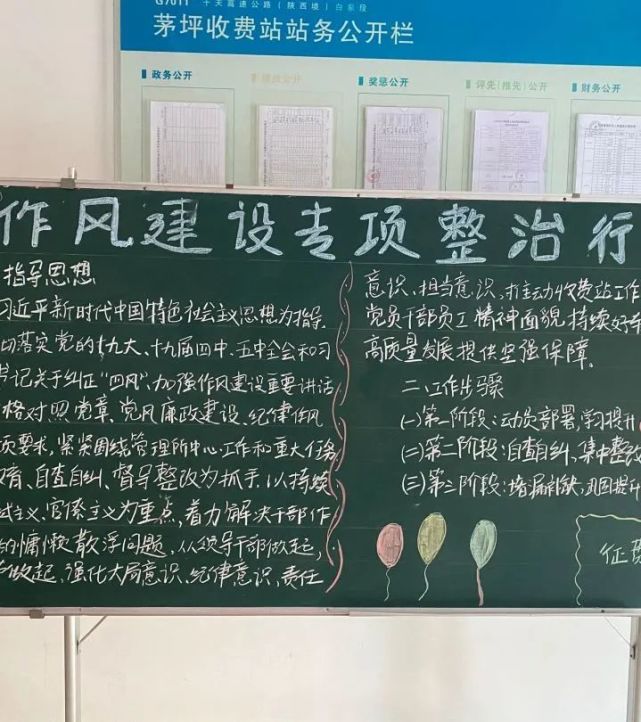 G7011 十天高速公路（陕西境）白泉段
茅坪收费站站务公开栏
政务公开
绩效公开
奖惩公开
评先（推先）公开
财务公开
作风建设专项整治行
指导思想
习近平新时代中国特色社会主义思想为指导.
彻落实党的十九大、十九届四中、五中全会和习
书记关于纠正“四风”、加强作风建设重要讲话
格对照党章、党风廉政建设、纪律作风
项要求,紧紧围绕管理所中心工作和重大任务
育、自查自纠、督导整改为抓手,以持续
式主义、官僚主义为重点,着力解决干部作
的慵懒散浮问题,从领导干部做起,
做起、强化大局意识、纪律意识、责任
意识、担当意识,推动收费站工作
党员干部员工精神面貌持续好转
高质量发展提供坚强保障.
二、工作步骤
(一)第一阶段:动员部署,学习提升
(二)第二阶段:自查自纠,集中整改
(三)第三阶段:堵漏补缺,巩固提升
征